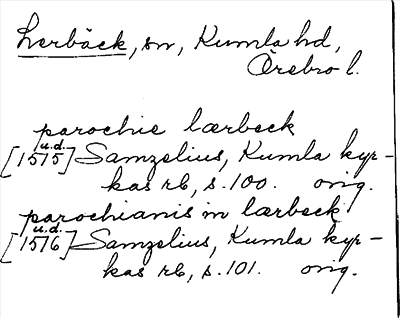 Lerbäck, sn, Kumla hd,
Örebro l.
parochie lærbeck
u.d.
[1515] Samzelius, Kumla kyr-
kas rb, s. 100. orig.
parochianis in lærbeck
u.d.
[1516] Samzelius, Kumla kyr-
kas rb, s. 101. orig.